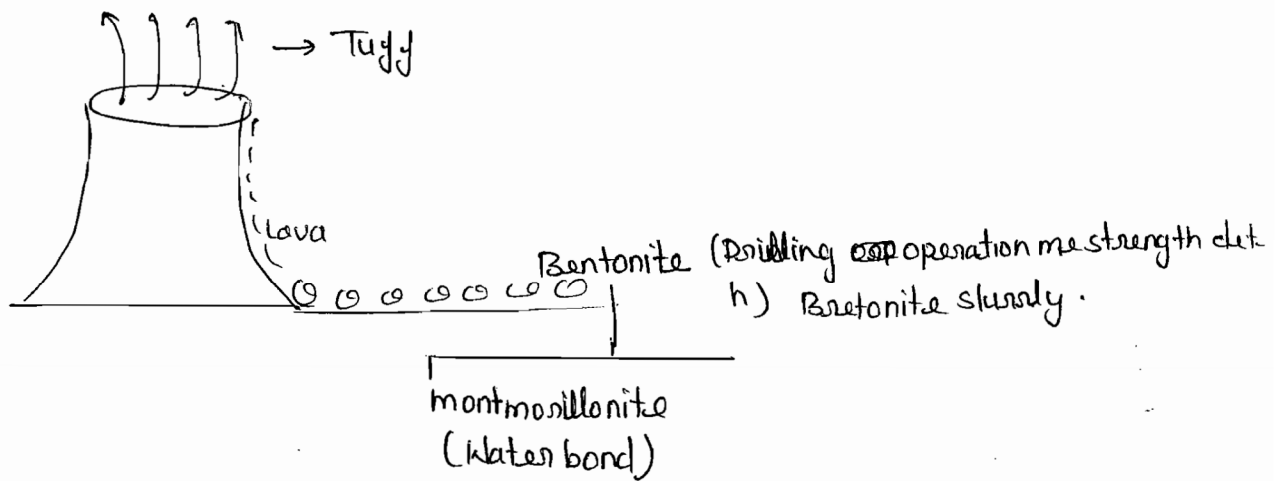 → Tuff
Lava
Bentonite (Drilling operation me strength det
h) Bretonite slurrly.
montmorillonite
(Water bond)